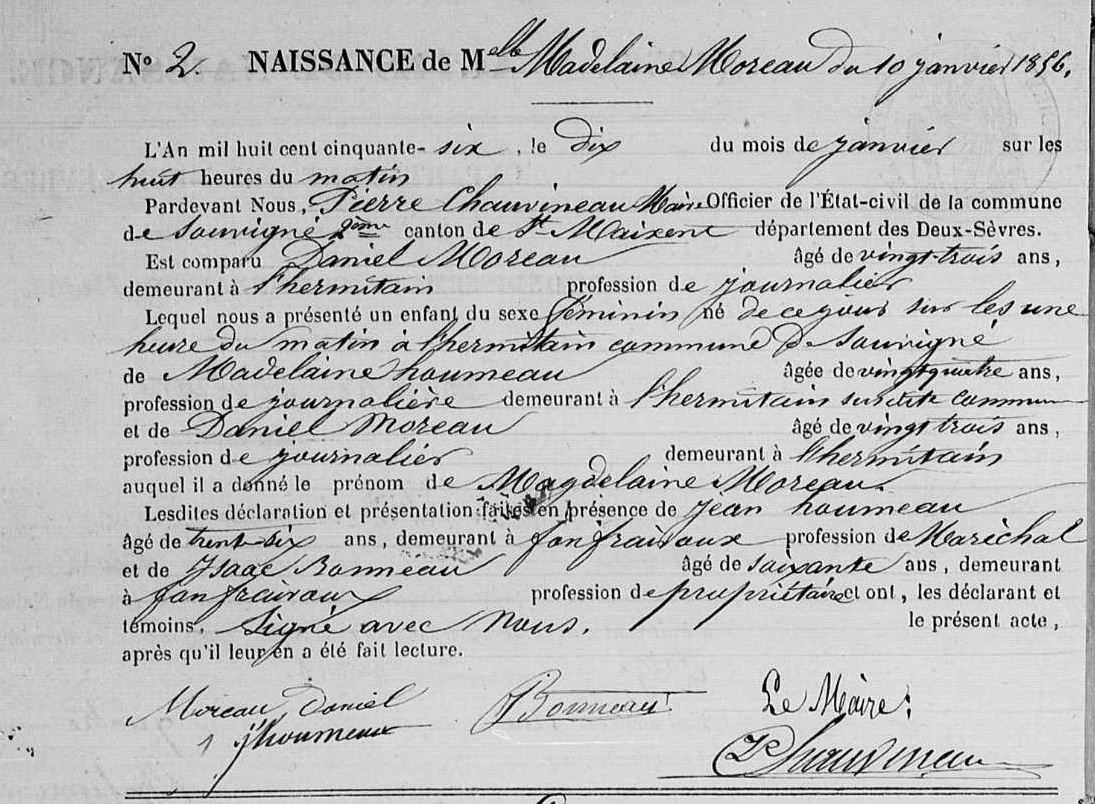 N° 2. NAISSANCE de Melle Madelaine Moreau du 10 janvier 1856.
L'An mil huit cent cinquante- six , le Dix du mois de janvier sur les
huit heures du matin
Pardevant Nous, Pierre Chauvineau Maire Officier de l'État-civil de la commune
de Souvigné 2ème canton de St Maixent département des Deux-Sèvres.
Est comparu Daniel Moreau âgé de vingt-trois ans,
demeurant à l'hermitain profession de journalier
Lequel nous a présenté un enfant du sexe féminin né de ce jour sur les une
heure du matin à l'hermitain commune de Souvigné
de Madelaine houmeau âgée de vingt quatre ans,
profession de journalière demeurant à l'hermitain susdite commune
et de Daniel Moreau âgé de vingt trois ans,
profession de journalier demeurant à l'hermitain
auquel il a donné le prénom de Magdelaine Moreau.
Lesdites déclaration et présentation faites en présence de jean houmeau
âgé de trente-six ans, demeurant à fonfrairoux profession de Maréchal
et de Isaac Bonneau âgé de soixante ans, demeurant
à fonfrairoux profession de propriétaire et ont, les déclarant et
témoins, Signé avec Nous. le présent acte,
après qu'il leur en a été fait lecture.
Moreau Daniel Bonneau Le Maire:
jhoumeaux PChauvineau